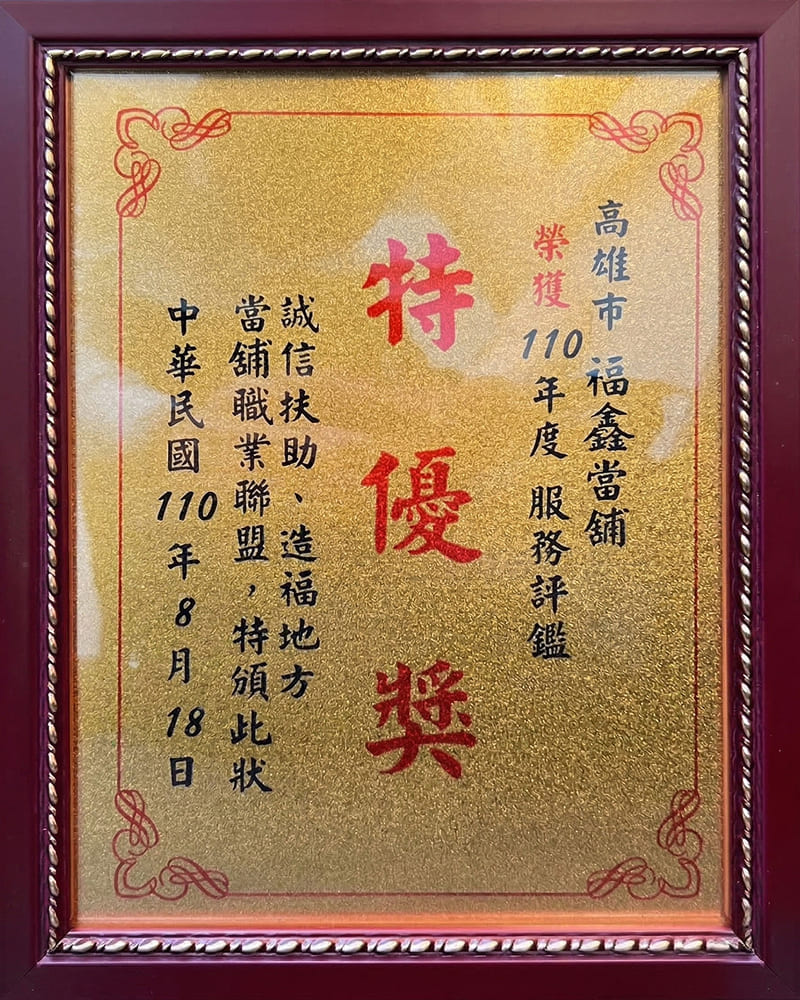 高雄市 福鑫當舖
榮獲 110 年度 服務評鑑
特優獎
誠信扶助、造福地方
當舖職業聯盟，特頒此狀
中華民國 110 年 8 月 18 日